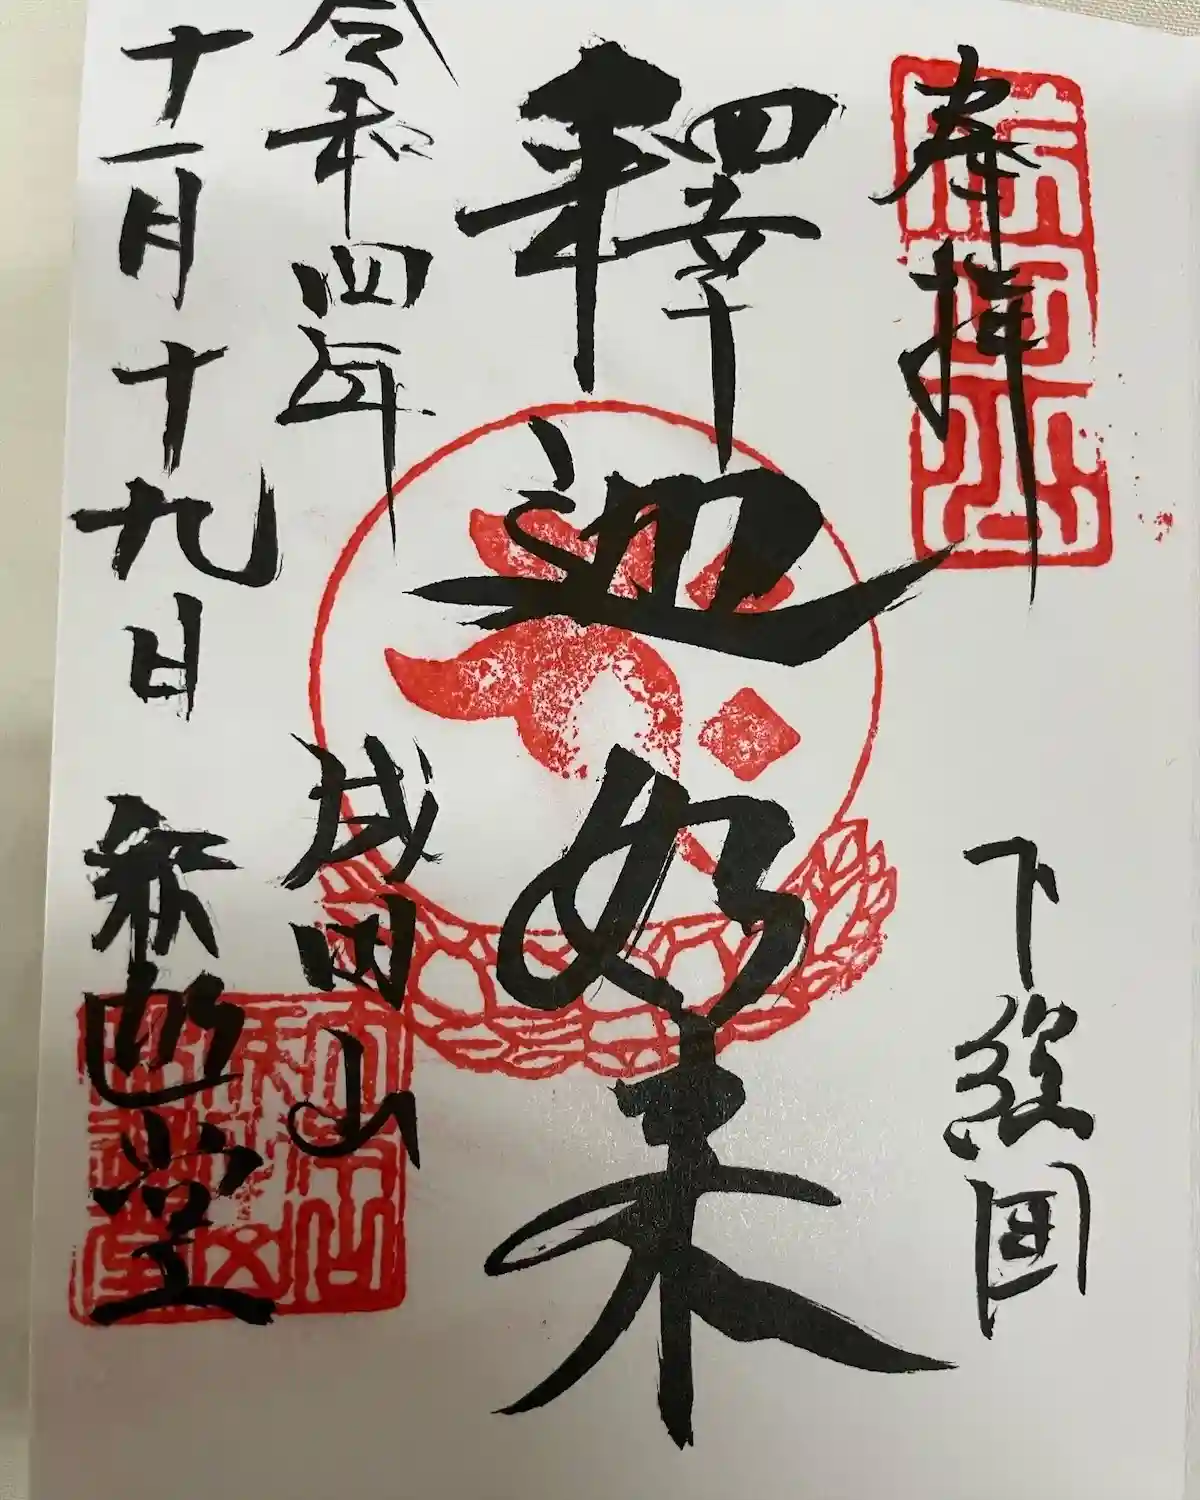 奉拝
下総国
釋迦如来
令和四年 成田山
十一月十九日 釈迦堂